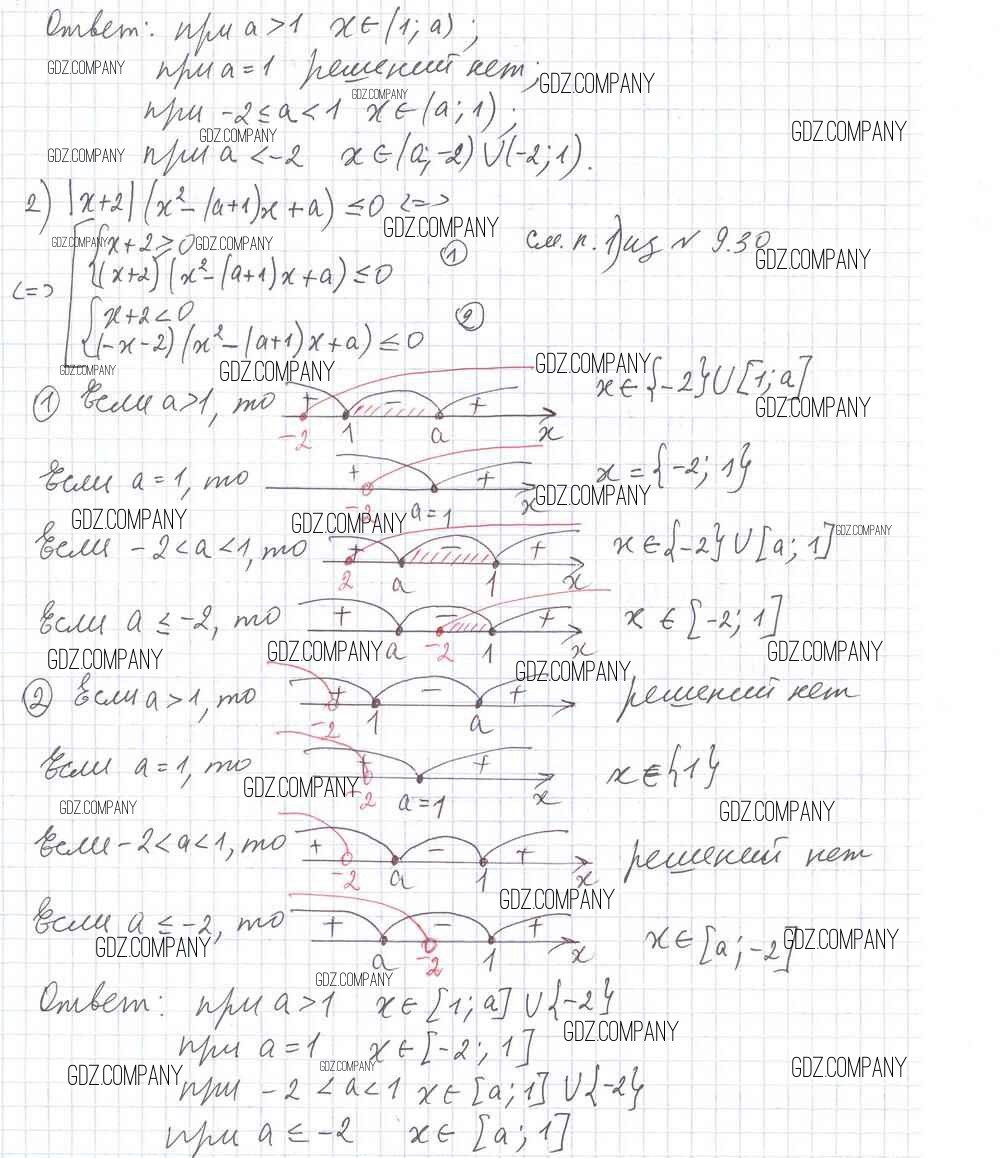 Ответ: при a > 1 x ∈ (1; a);
GDZ.COMPANY при a = 1 решений нет; GDZ.COMPANY
GDZ.COMPANY
при -2 ≤ a < 1 x ∈ (a; 1);
GDZ.COMPANY GDZ.COMPANY
GDZ.COMPANY при a < -2 x ∈ (a; -2) ∪ (-2; 1).
2) |x+2| (x² - (a+1)x + a) ≤ 0 <=>
GDZ.COMPANY
GDZ.COMPANY x+2 ≥ 0 GDZ.COMPANY ① см. п. 1) из № 9.30
<=> (x+2) (x² - (a+1)x + a) ≤ 0 GDZ.COMPANY
x+2 < 0 ②
(-x-2) (x² - (a+1)x + a) ≤ 0
GDZ.COMPANY GDZ.COMPANY GDZ.COMPANY
① Если a > 1, то + - + x ∈ {-2} ∪ [1; a]
GDZ.COMPANY
-2 1 a x
Если a = 1, то + + x = {-2; 1}
GDZ.COMPANY
-2 a = 1 x
GDZ.COMPANY GDZ.COMPANY
Если -2 < a < 1, то + - + x ∈ {-2} ∪ [a; 1] GDZ.COMPANY
2 a 1 x
Если a ≤ -2, то + - + x ∈ [-2; 1]
a -2 1 x
GDZ.COMPANY GDZ.COMPANY GDZ.COMPANY
GDZ.COMPANY
② Если a > 1, то + - + решений нет
-2 1 a
Если a = 1, то + + x ∈ {1}
GDZ.COMPANY
+2 a = 1 x
GDZ.COMPANY GDZ.COMPANY
Если -2 < a < 1, то + - + решений нет
-2 a 1 x
GDZ.COMPANY
Если a ≤ -2, то + - + x ∈ [a; -2]
GDZ.COMPANY GDZ.COMPANY
a -2 1 x
GDZ.COMPANY
Ответ: при a > 1 x ∈ [1; a] ∪ {-2}
GDZ.COMPANY
при a = 1 x ∈ [-2; 1]
GDZ.COMPANY GDZ.COMPANY GDZ.COMPANY
при -2 < a < 1 x ∈ [a; 1] ∪ {-2}
при a ≤ -2 x ∈ [a; 1]